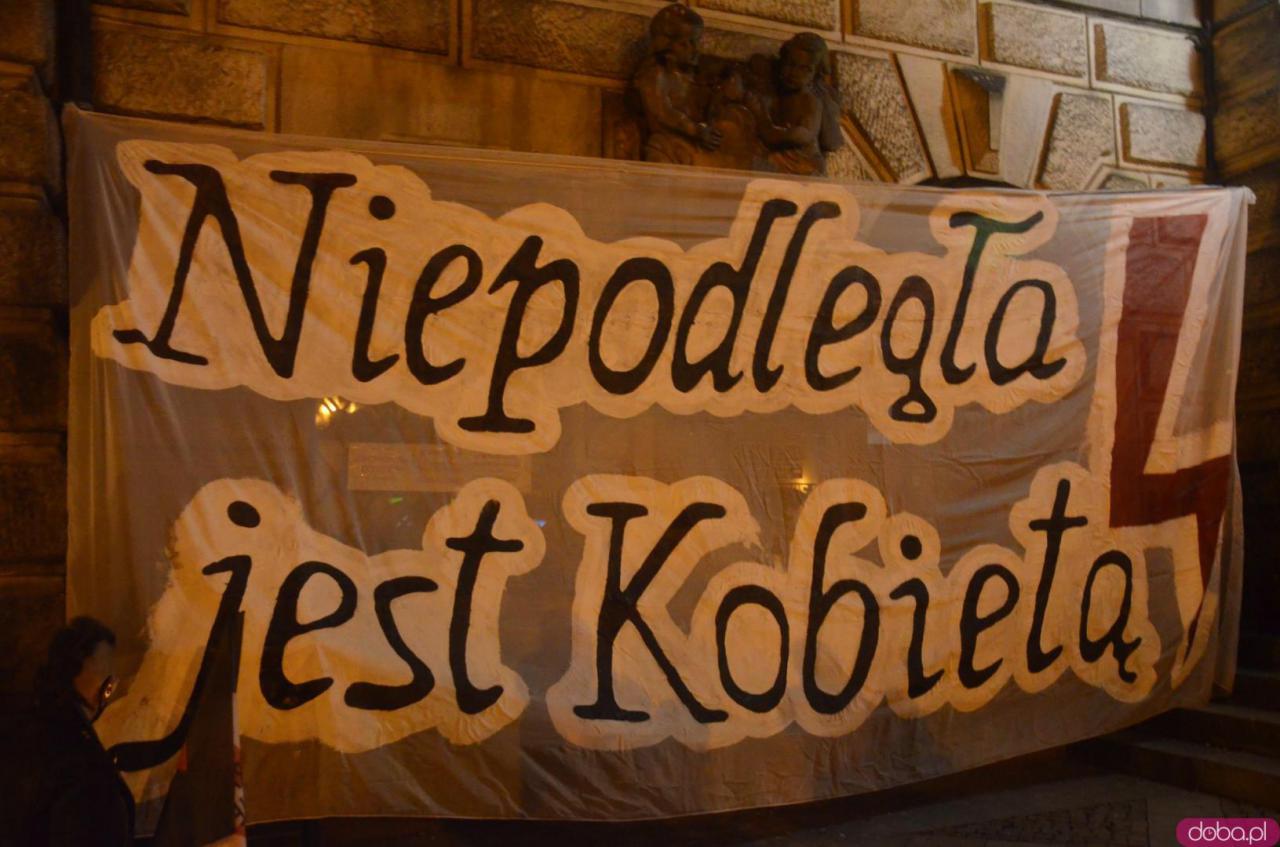 Niepodległa
jest Kobietą
doba.pl